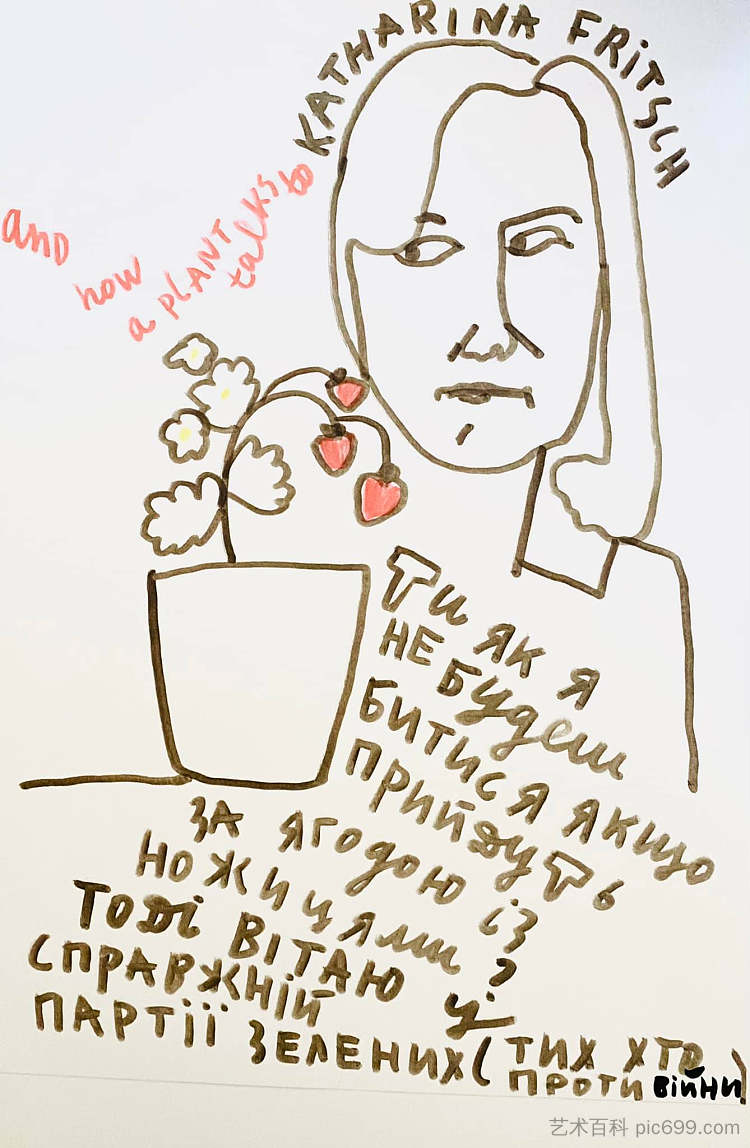 KATHARINA FRiTSCH
and how a PLANT talks to
Ти як я
не будеш
битися якщо
прийдуть
за ягодою із
ножицями ?
Тоді вітаю у
справжній
партії зелених (тих хто
проти війни)
艺术百科 pic699.com